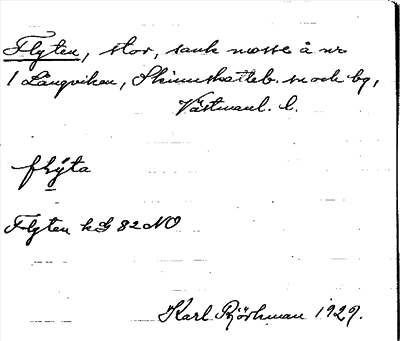 Flyten, stor, sank mosse å nr
1 Långviken, Skinnskatteb. sn och bg,
Västmanl. l.
flýta
Flyten kG 82 NO
Karl Björkman 1929.